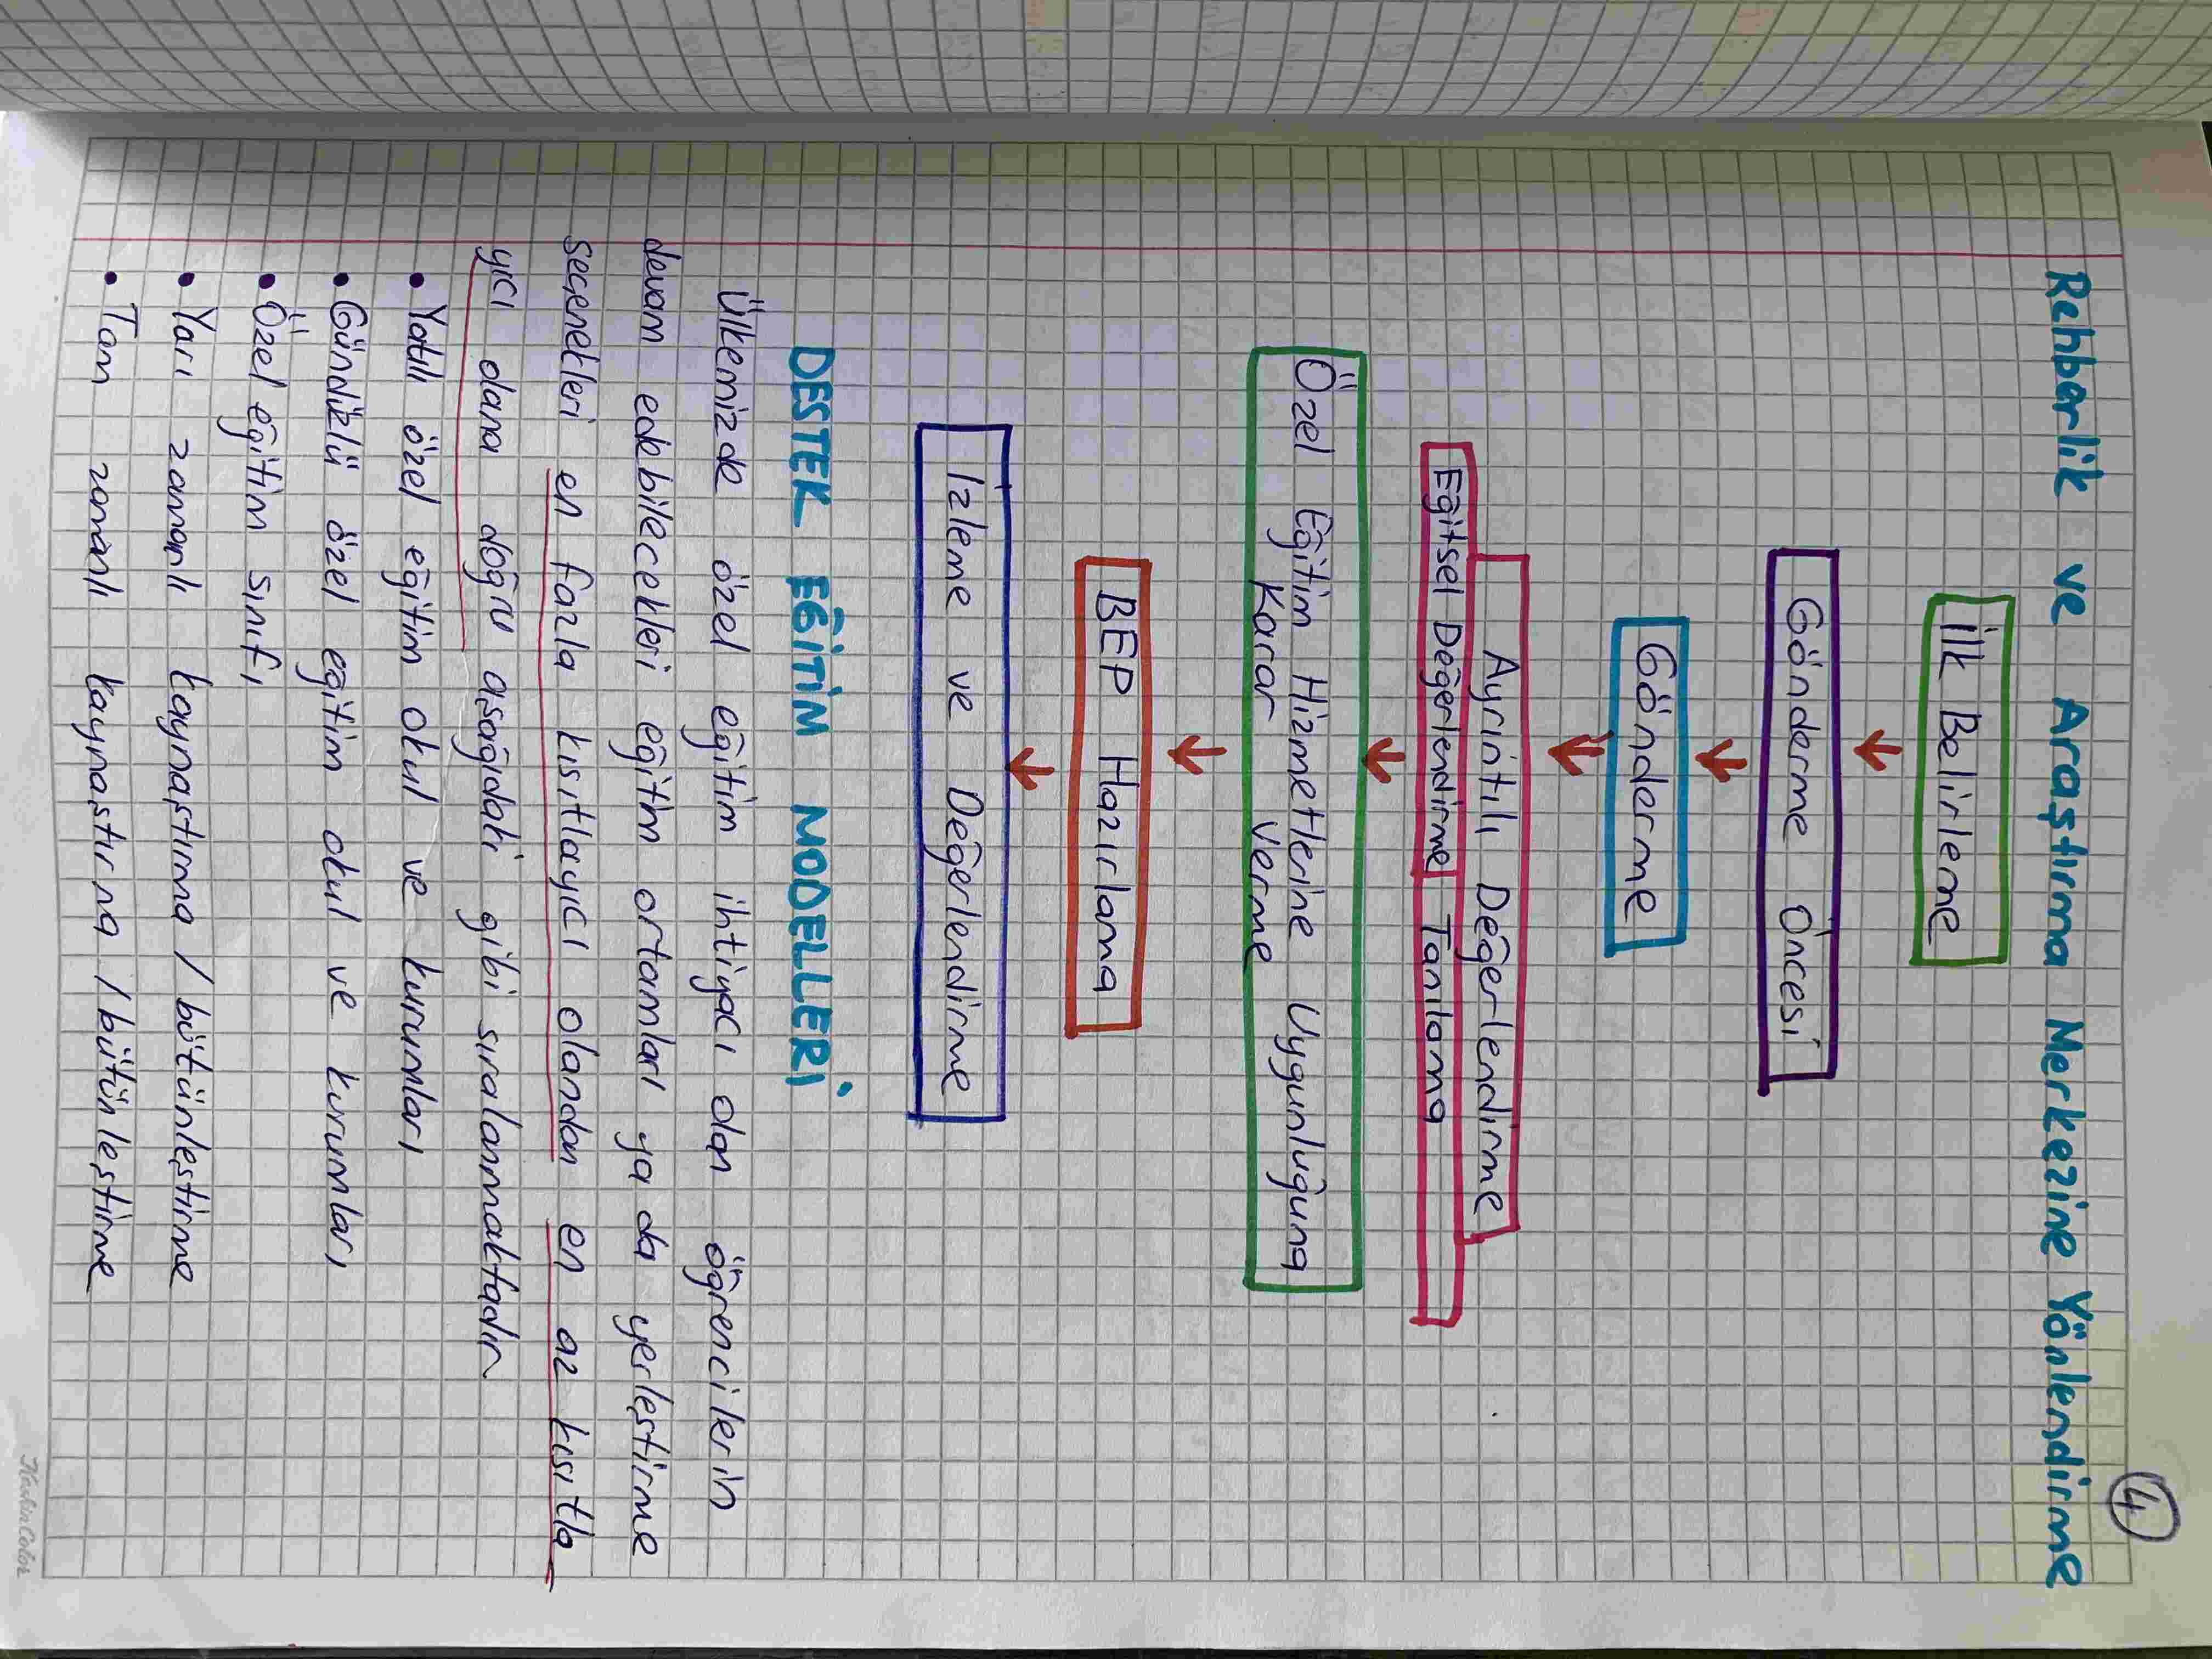 4
Rehberlik ve Araştırma Merkezine Yönlendirme
İlk Belirleme
Gönderme Öncesi
Gönderme
Ayrıntılı Değerlendirme
Eğitsel Değerlendirme Tanılama
Özel Eğitim Hizmetlerine Uygunluğuna
Karar Verme
BEP Hazırlama
İzleme ve Değerlendirme
DESTEK EĞİTİM MODELLERİ
Ülkemizde özel eğitim ihtiyacı olan öğrencilerin
devam edebilecekleri eğitim ortamları ya da yerleştirme
seçenekleri en fazla kısıtlayıcı olandan en az kısıtla
yıcı olana doğru aşağıdaki gibi sıralanmaktadır
• Yatılı özel eğitim okul ve kurumları
• Gündüzlü özel eğitim okul ve kurumları
• Özel eğitim sınıfı
• Yarı zamanlı kaynaştırma / bütünleştirme
• Tam zamanlı kaynaştırma / bütünleştirme
KeskinColor